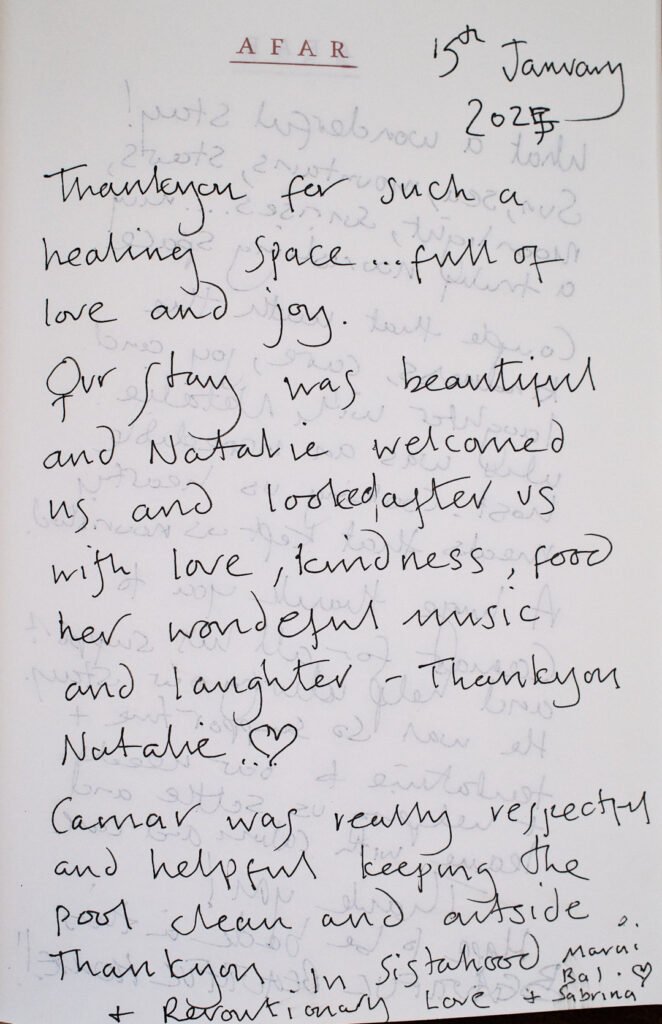 AFAR
15th January
202
Thankyou for such a
healing space...full of
love and joy.
Our stay was beautiful
and Natalie welcomed
us and looked after us
with love, kindness, food
her wondeful music
and laughter - Thankyou
Natalie...♡
Camar was really respectful
and helpful keeping the
pool clean and outside.
Thankyou. In sistahood
+ Revoutionary Love +
Bal. ♡
Sabrina